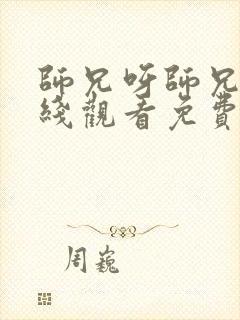 師兄呀師兄
綫觀看免費
周巍